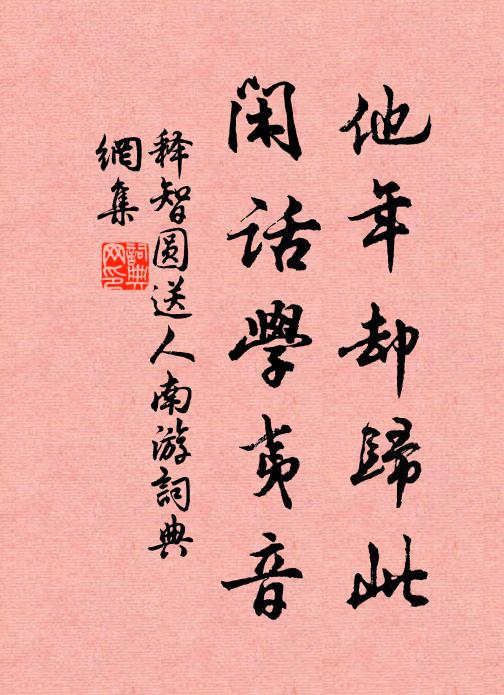 他年却歸此
閑話學夷音
释智圆送人南游詞典
網集
詞典
网印